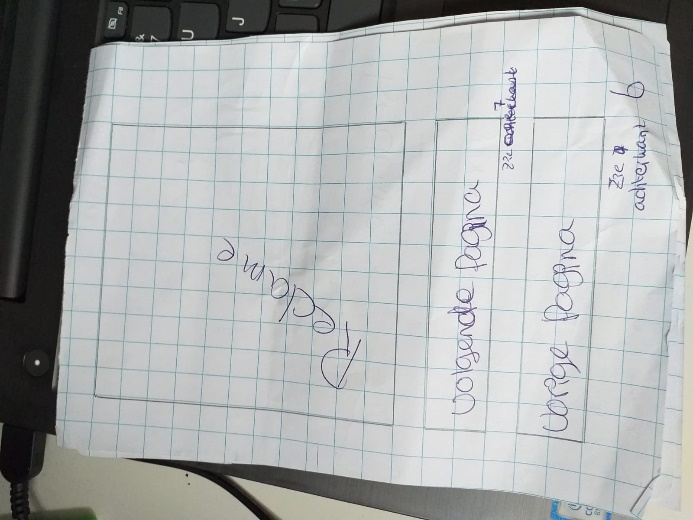 Reclame
volgende pagina
zie achterkant 7
vorige pagina
zie
achterkant 6